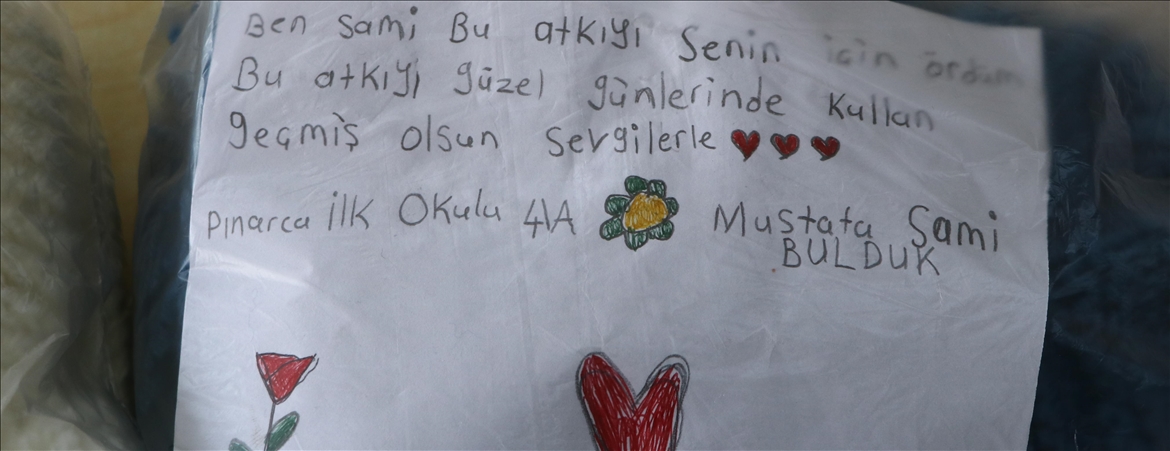 Ben Sami Bu atkıyı Senin için ördüm
Bu atkıyı güzel günlerinde Kullan
geçmiş olsun sevgilerle
Pınarca İlk Okulu 4/A
Mustafa Sami
BULDUK